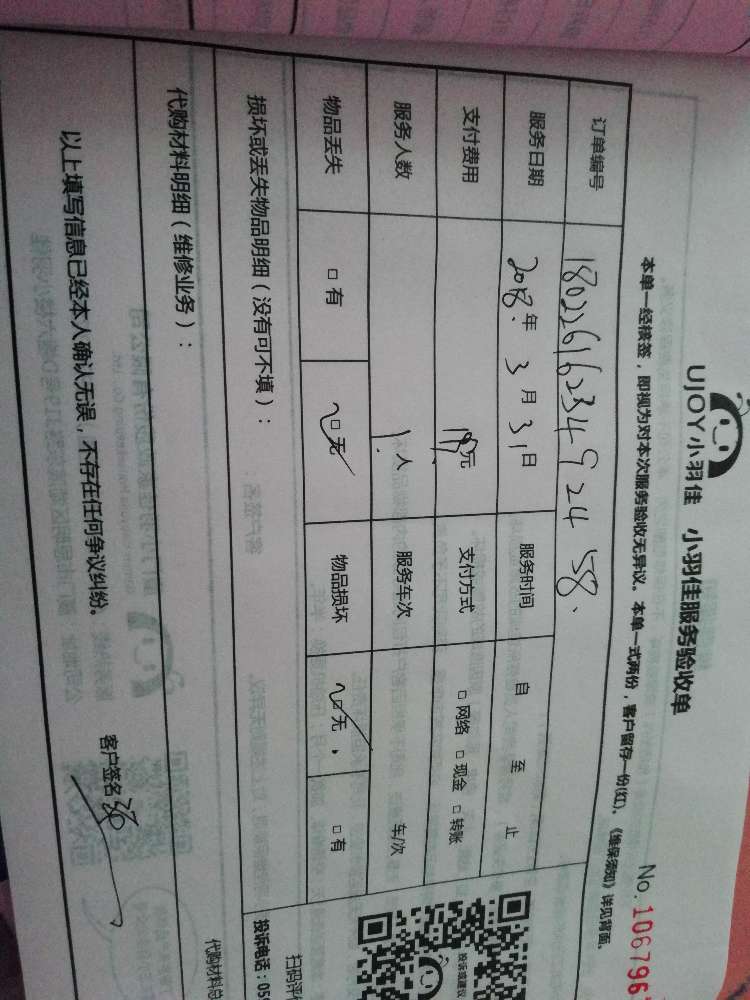 UJOY小羽佳 小羽佳服务验收单
No. 106796
本单一经核签，即视为对本次服务验收无异议。本单一式两份，客户留存一份(红)。《维保须知》详见背面。
订单编号 180226162349 24 58.
服务日期 2018年 3月 31日 服务时间 自 至 止
支付费用 元 支付方式 □网络 □现金 □转账
服务人数 1人 服务车次 车/次
物品丢失 □有 □无 物品损坏 □无 □有
损坏或丢失物品明细（没有可不填）：
代购材料明细（维修业务）：
以上填写信息已经本人确认无误，不存在任何争议纠纷。
客户签名
投诉建议
扫码评
投诉电话：05
代购材料总